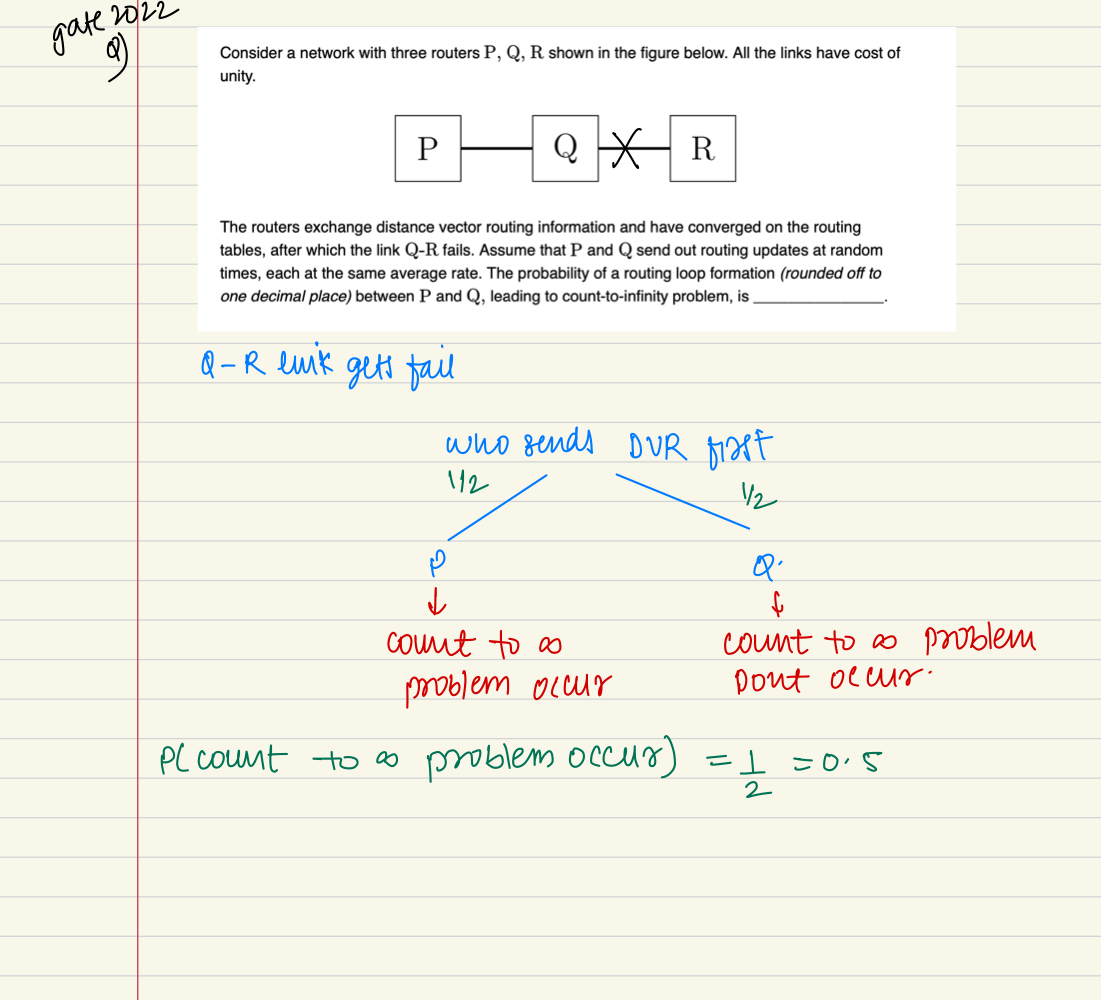 gate 2022
Q)
Consider a network with three routers P, Q, R shown in the figure below. All the links have cost of
unity.
P Q R
The routers exchange distance vector routing information and have converged on the routing
tables, after which the link Q-R fails. Assume that P and Q send out routing updates at random
times, each at the same average rate. The probability of a routing loop formation (rounded off to
one decimal place) between P and Q, leading to count-to-infinity problem, is ______________.
Q-R link gets fail
who sends DVR first
1/2 1/2
P Q.
↓ ↓
count to ∞ count to ∞ problem
problem occur Dont occur.
P( count to ∞ problem occur) = 1/2 = 0.5